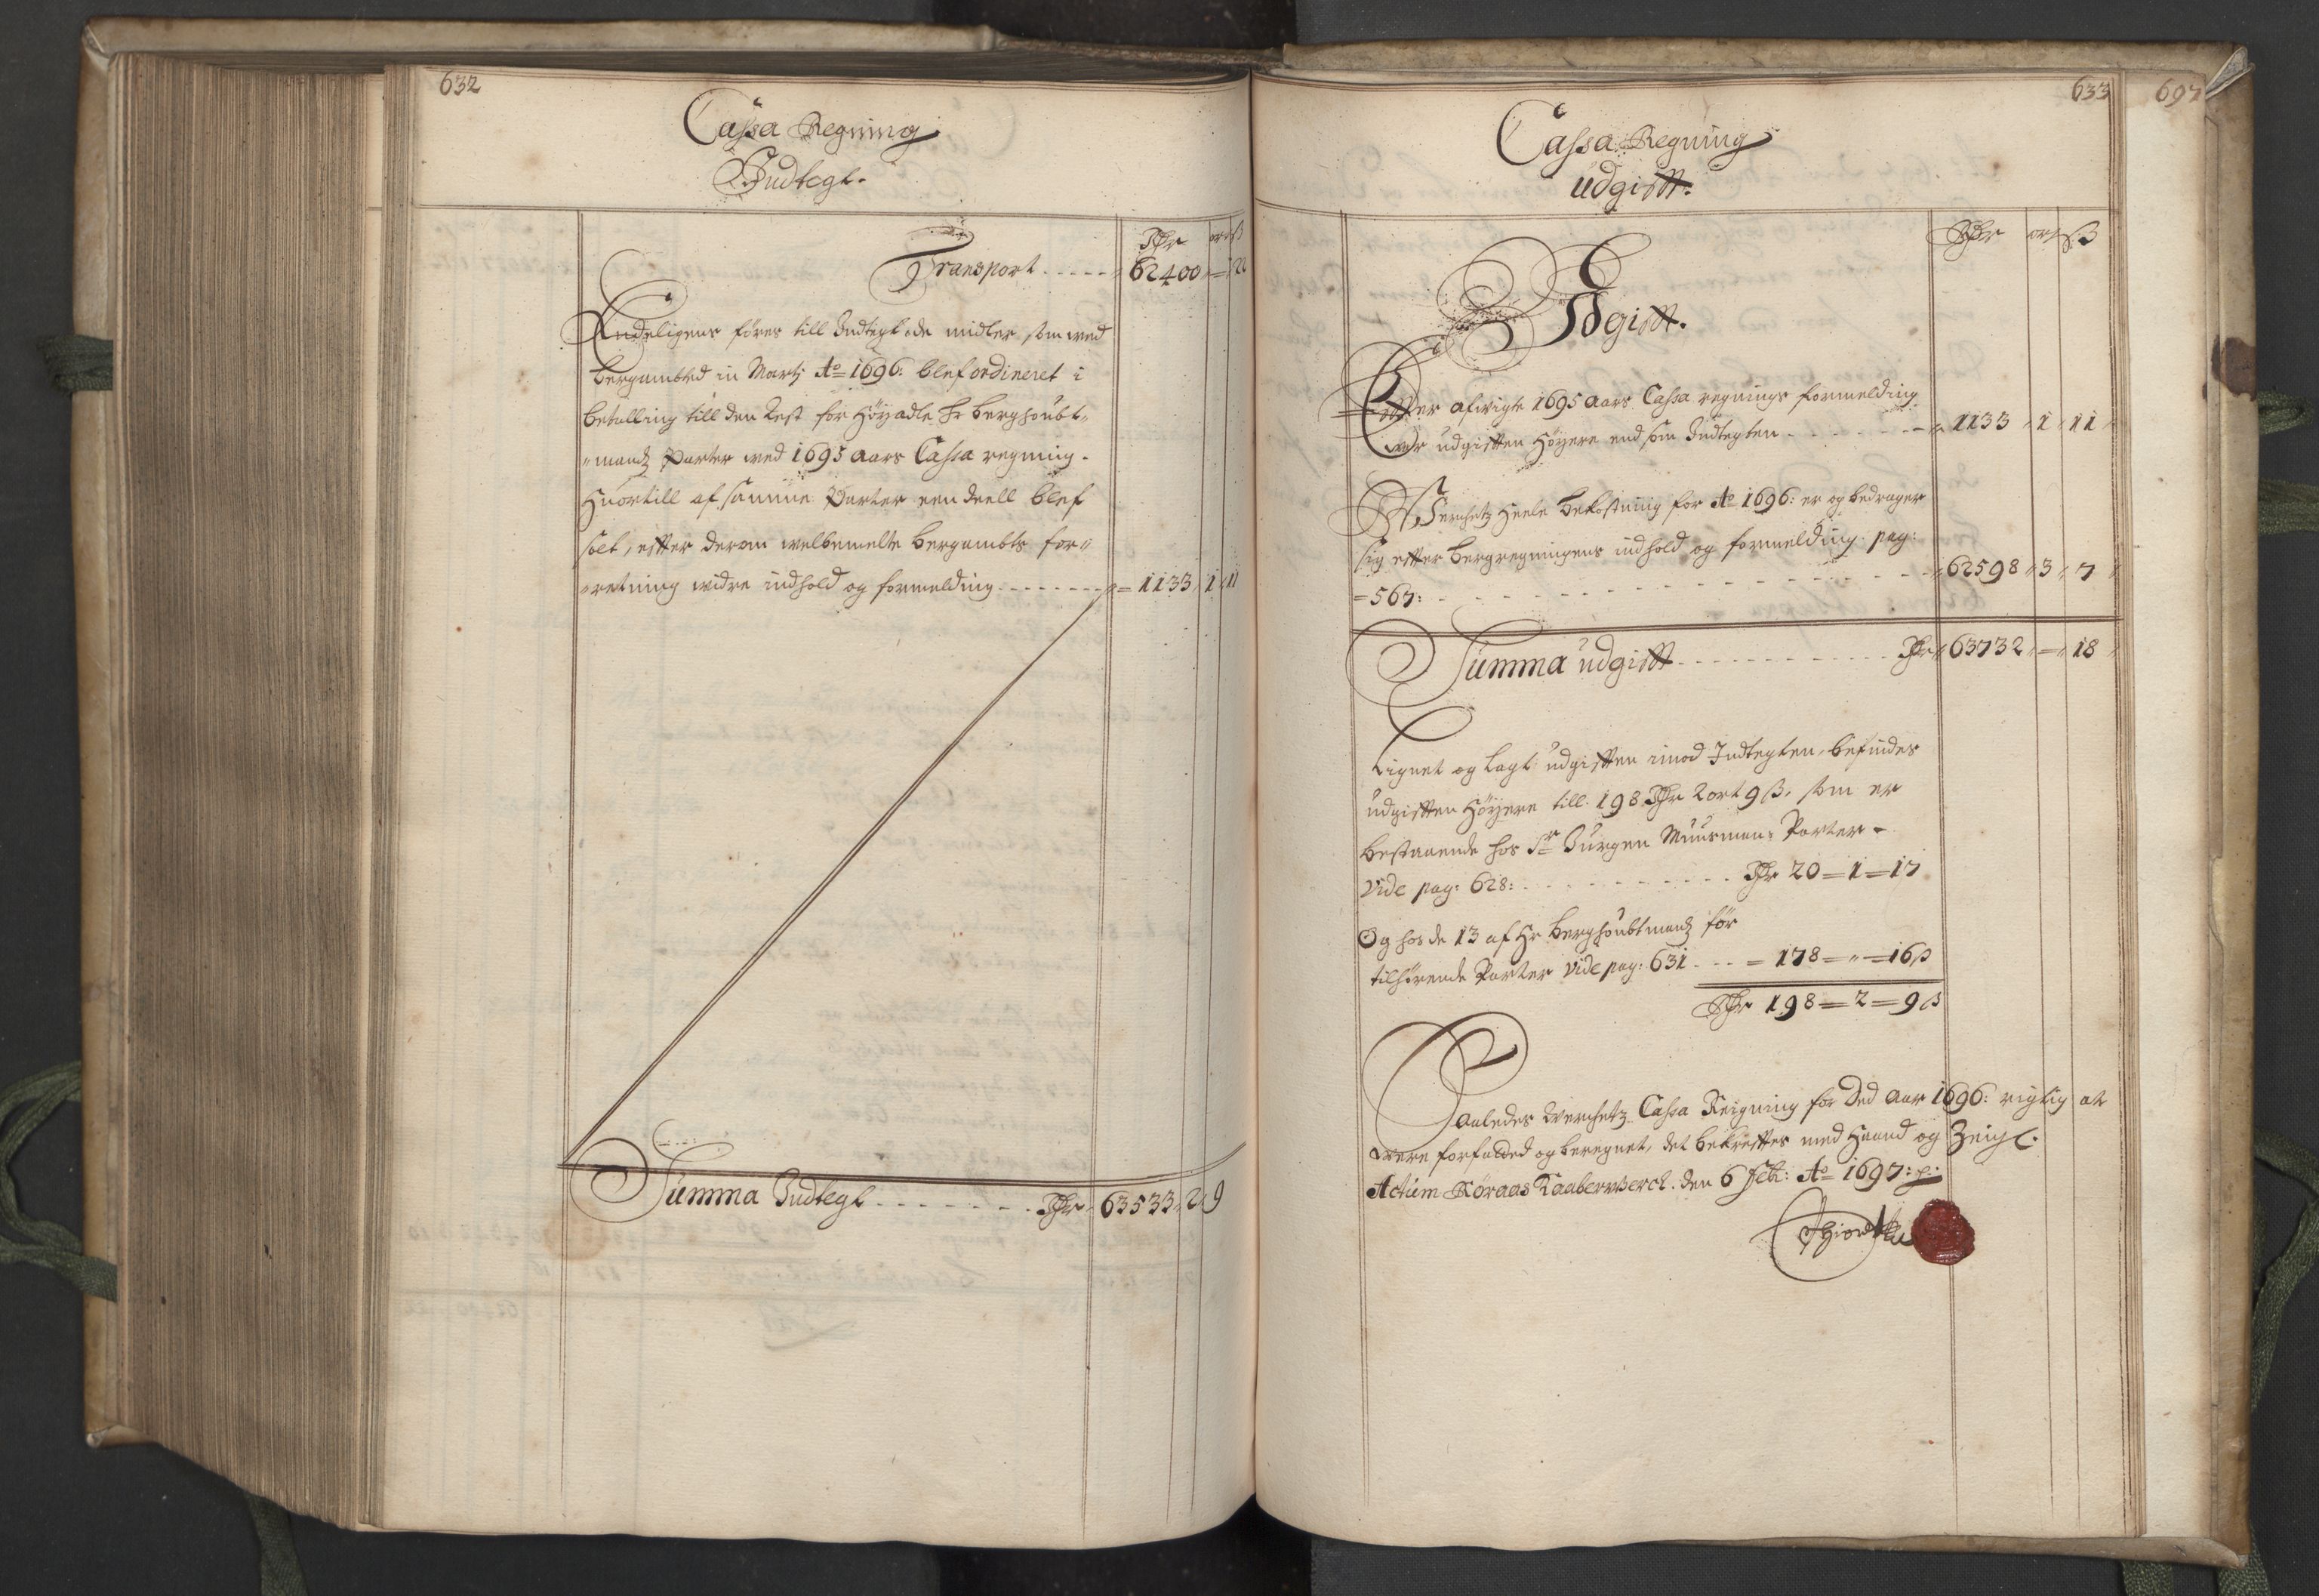 632
Cassa Regning
Indtegt.
Rdr ort ß
Transport - - - - - 62400 = 22
Endeligens föres till Indtegt de midler som wed
bergambted in Martj Ao 1696: blef ordineret i
betalling till den Rest for Höyædle Hr berghoubt-
mandz Parter wed 1695 aars Cassa regning.
Huortill af samme Parter een deell blef
solt, efter derom welbemelte bergambts for-
retning widre indhold og formelding - - - - - 1133 1 11
Summa Indtegt - - - - - - - Rdr 63533 2 9
633
697
Cassa Regning
Udgifft.
Rdr ort ß
Udgifft.
Effter afwigte 1695 aars Cassa regnings formelding
war udgifften Höyere end som Indtegten - - - - - 1133 1 11
Werchetz heele bekostning for Ao 1696: er og bedrager
sig effter bergregningens indhold og formelding pag:
567: - - - - - - - - - - - 62598 3 7
Summa udgifft - - - - - - - - - - - Rdr 63732 = 18
Lignet og lagt udgifften imod Indtegten, befindes
udgifften Höyere till 198 Rdr 2 ort 9 ß, som er
bestaaende hos Sr Jürgen Muusman: Parter
vide pag: 628: - - - - - - - - - - - Rdr 20 = 1 = 17
Og hos de 13 af Hr berghoubtmandz för
tilhörende Parter vide pag: 631 - - - = 178 = " = 16 ß
Rdr 198 = 2 = 9 ß
Saaledes Werchetz Cassa Reigning for Ded Aar 1696: rigtig at
were forfatted og beregnet, det bekreffter med Haand og Zeigl.
Actum Röraas Kaaberwerch. den 6 Feb: Ao 1697: